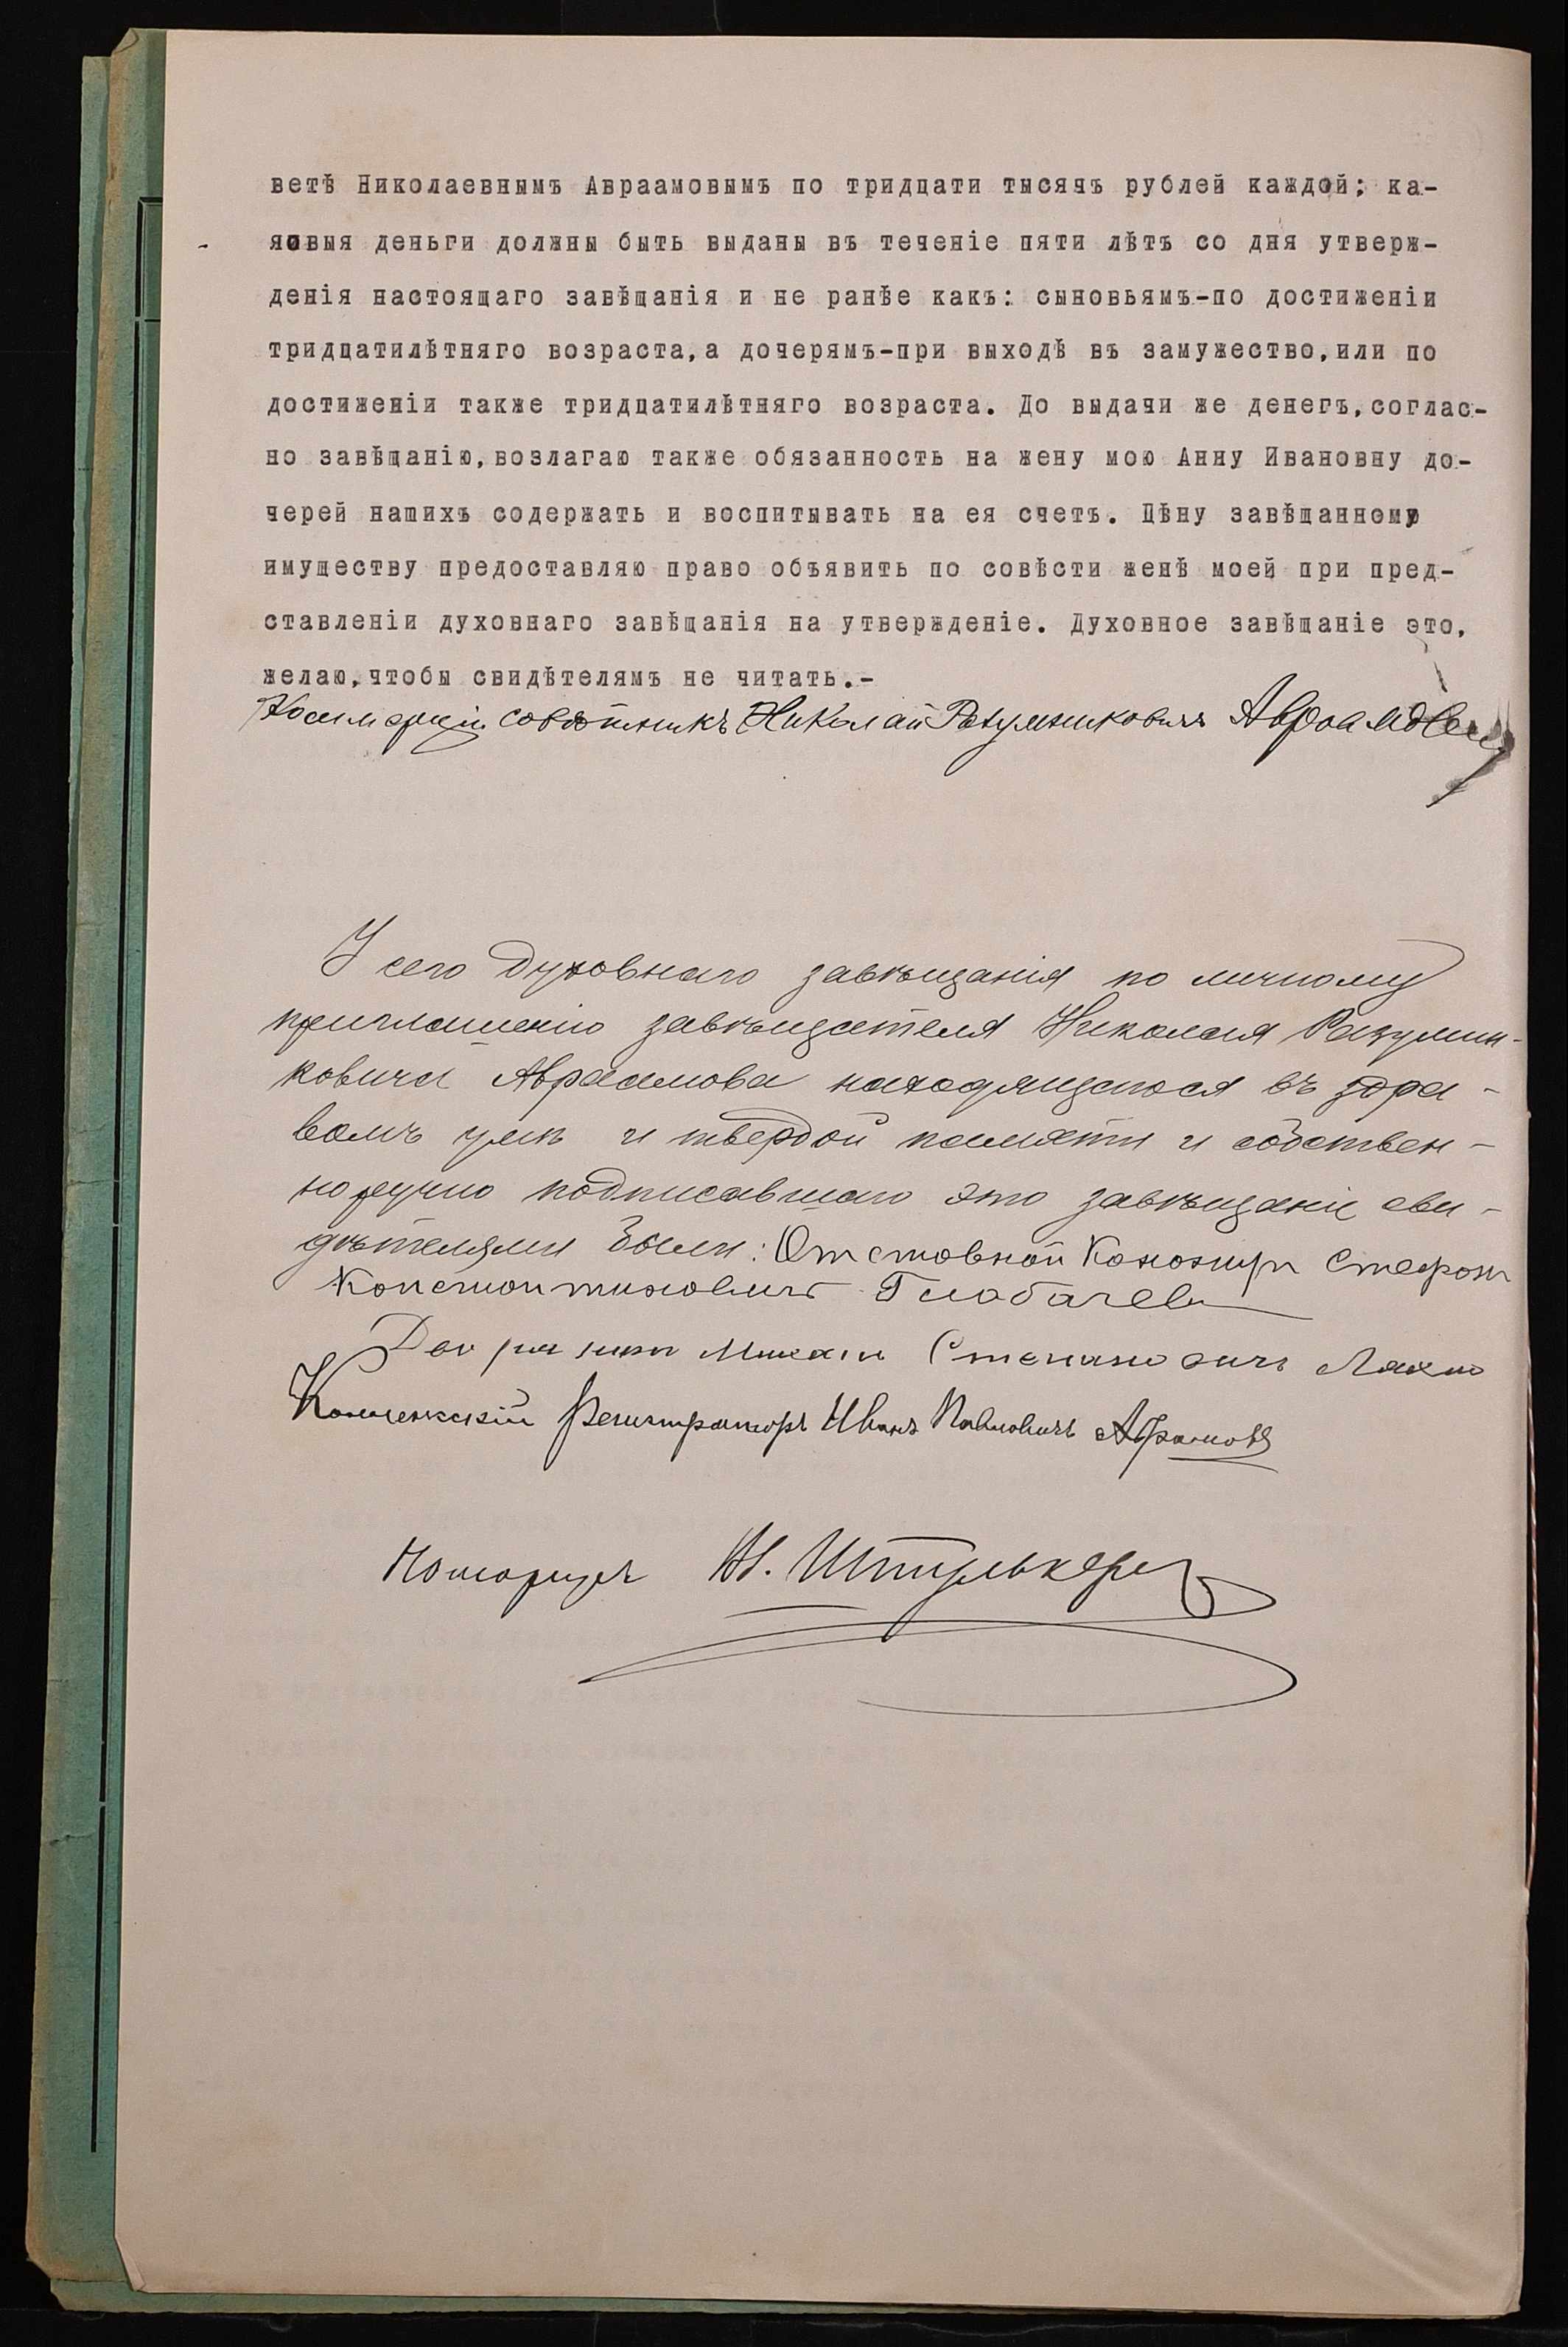 ветѣ Николаевнымъ Авраамовымъ по тридцати тысячъ рублей каждой; ка-
яовыя деньги должны быть выданы въ теченіе пяти лѣтъ со дня утверж-
денія настоящаго завѣщанія и не ранѣе какъ: сыновьямъ-по достиженіи
тридцатилѣтняго возраста,а дочерямъ-при выходѣ въ замужество,или по
достиженіи также тридцатилѣтняго возраста. До выдачи же денегъ,соглас-
но завѣщанію,возлагаю также обязанность на жену мою Анну Ивановну до-
черей нашихъ содержать и воспитывать на ея счетъ. Цѣну завѣщанному
имуществу предоставляю право объявить по совѣсти женѣ моей при пред-
ставленіи духовнаго завѣщанія на утвержденіе. Духовное завѣщаніе это,
желаю,чтобы свидѣтелямъ не читать.-
совѣтникъ Николай Разумниковичъ Авраамовъ
У сего духовнаго завѣщанія по личному
приглашенію завѣщателя Николая Разумни-
ковича Авраамова находящагося въ здра-
вомъ умѣ и твердой памяти и собствен-
норучно подписавшаго это завѣщаніе сви-
дѣтелями были: Отставной Канониръ Стефанъ
Константиновичъ Глобачевъ
Дворянинъ Михаилъ Степановичъ Ляхно
Коллежскій Регистраторъ Иванъ Павловичъ Абрамовъ
Нотаріусъ